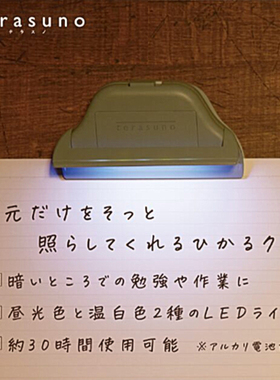 rasuno
テラスノ
terasuno
元だけをそっと
照らしてくれるひかるク
暗いところでの勉強や作業に
昼光色と温白色2種のLEDライ
約30時間使用可能 ※アルカリ電池